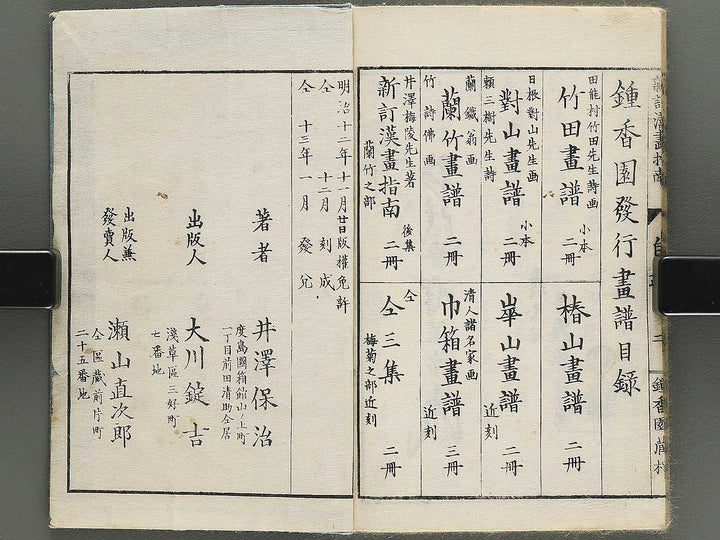 鍾香園發行畫譜目録
田能村竹田先生詩画
竹田畫譜 小本 二冊
椿山畫譜 二冊
日根對山先生画
對山畫譜 小本 二冊
頼三樹先生詩
崋山畫譜 近刻 二冊
蘭 鐵翁画
蘭竹畫譜 二冊
竹 詩佛画
清人諸名家画
巾箱畫譜 近刻 三冊
井澤梅陵先生著
新訂漢畫指南 後集 二冊
蘭竹之部
仝
仝三集 二冊
梅菊之部近刻
明治十二年十一月廿日版權免許
仝 十二月刻成
仝 十三年一月 發兌
著者 井澤保治
度島國箱舘山ノ上町
一丁目前田清助仝居
出版人 大川錠吉
淺草區三好町
七番地
出版兼
發賣人 瀬山直次郎
仝區藏前片町
二十五番地
新訂漢畫指南
鍾香園藏梓